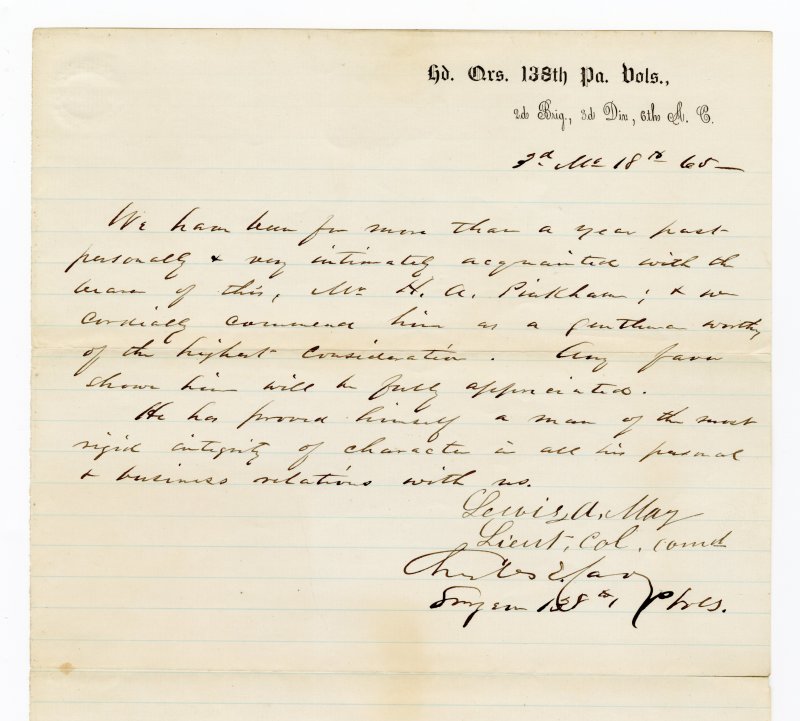 Hd. Qrs. 138th Pa. Vols.,
2d Brig., 3d Div., 6th A. C.
3d Mo 18th 65
We have been for more than a year past
personally & very intimately acquainted with th
bearer of this, Mr H. A. Pinkham; & we
cordially commend him as a gentleman worthy
of the highest consideration. Any favor
shown him will be fully appreciated.
He has proved himself a man of the most
rigid integrity of character in all his personal
& business relations with us.
Lewis A. May
Lieut. Col. comd
Charles E.
Surgeon 138th P Vols.